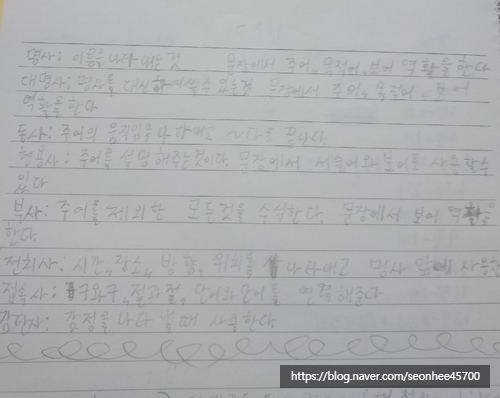 명사: 이름을 나타내는 것 문장에서 주어, 목적어, 보어 역할을 한다
대명사: 명사를 대신하여쓸수 있는것 문장에서 주어, 목적어, 보어
역할을 한다
동사: 주어의 움직임을 나타내고 ~다로 끝난다.
형용사: 주어를 설명해주는것이다. 문장에서 서술어와 보어로 사용할수
있다
부사: 주어를 제외한 모든것을 수식한다. 문장에서 보어 역할을
한다.
전치사: 시간, 장소, 방향, 위치를 나타내고 명사 앞에 사용한
접속사: 구와구, 절과절, 단어와단어를 연결해준다
감탄사: 감정을 나타낼때 사용한다.
https://blog.naver.com/seonhee45700